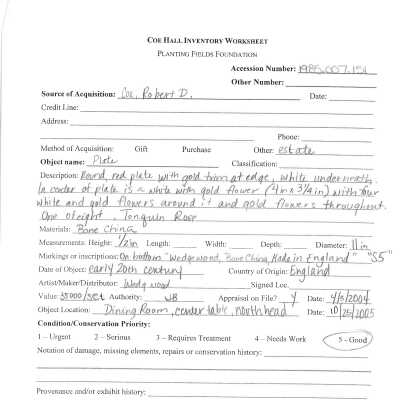 COE HALL INVENTORY WORKSHEET
PLANTING FIELDS FOUNDATION
Accession Number: 1985.007.151
Other Number:
Source of Acquisition: Coe, Robert D. Date:
Credit Line:
Address:
Phone:
Method of Acquisition: Gift Purchase Other: estate
Object name: Plate Classification:
Description: Round, red plate with gold trim at edge, white underneath,
in center of plate is a white with gold flower (4in x 3 1/4 in) with four
white and gold flowers around it and gold flowers throughout.
One of eight, Tonquin Rose
Materials: Bone China
Measurements: Height: 1/2 in Length: Width: Depth: Diameter: 11 in
Markings or inscriptions: On bottom "Wedgewood, Bone China, Made in England" "55"
Date of Object: early 20th century Country of Origin: England
Artist/Maker/Distributor: Wedgwood Signed Loc.
Value: /set Authority: JB Appraisal on File? Y Date: 4/5/2004
Object Location: Dining Room, center table, north head Date: 10/25/2005
Condition/Conservation Priority:
1 – Urgent 2 – Serious 3 – Requires Treatment 4 – Needs Work 5 – Good
Notation of damage, missing elements, repairs or conservation history:
Provenance and/or exhibit history: